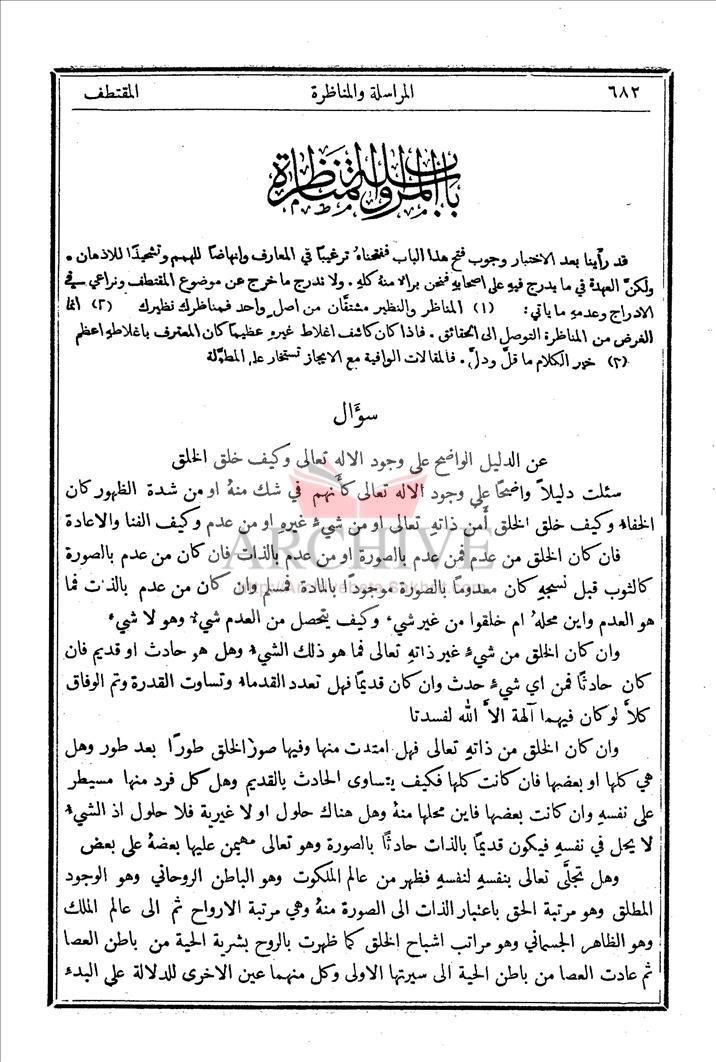 ٦٨٢ المراسلة والمناظرة المقتطف
باب المراسلة والمناظرة
قد رأينا بعد الاختبار وجوب فتح هذا الباب ففتحناهُ ترغيبًا في المعارف وانهاضًا للهمم وتشحيذًا للاذهان .
ولكنّ العهدة في ما يدرج فيهِ على اصحابهِ فنحن براء منهُ كلهِ . ولا ندرج ما خرج عن موضوع المقتطف ونراعي في
الادراج وعدمهِ ما ياتي : (١) المناظر والنظير مشتقَّان من اصل واحد فمناظرك نظيرك (٢) انما
الغرض من المناظرة التوصل الى الحقائق . فاذا كان كاشف اغلاط غيرهِ عظيمًا كان المعترف باغلاطهِ اعظم
(٣) خير الكلام ما قلَّ ودلَّ . فالمقالات الوافية مع الايجاز تستخار على المطوَّلة
سؤَال
عن الدليل الواضح على وجود الاله تعالى وكيف خلق الخلق
سئلت دليلاً واضحًا على وجود الاله تعالى كأَنهم في شك منهُ او من شدة الظهور كان
الخفاء وكيف خلق الخلق أَمن ذاتهِ تعالى او من شيءٍ غيرهِ او من عدم وكيف الفنا والاعادة
فان كان الخلق من عدم فمن عدم بالصورة او من عدم بالذات فان كان من عدم بالصورة
كالثوب قبل نسجهِ كان معدومًا بالصورة موجودًا بالمادة فمسلم وان كان من عدم بالذت فما
هو العدم واين محلهُ ام خلقوا من غير شيء وكيف يتحصل من العدم شيءٌ وهو لا شيء
وان كان الخلق من شيءٍ غير ذاتهِ تعالى فما هو ذلك الشيء وهل هو حادث او قديم فان
كان حادثًا فمن اي شيءٍ حدث وان كان قديمًا فهل تعدد القدماء وتساوت القدرة وتم الوفاق
كلاَّ لو كان فيهما آلهة الاَّ الله لفسدتا
وان كان الخلق من ذاتهِ تعالى فهل امتدت منها وفيها صور الخلق طورًا بعد طور وهل
هي كلها او بعضها فان كانت كلها فكيف يتساوى الحادث بالقديم وهل كل فرد منها مسيطر
على نفسهِ وان كانت بعضها فاين محلها منهُ وهل هناك حلول او لا غيرية فلا حلول اذ الشيء
لا يحل في نفسهِ فيكون قديمًا بالذات حادثًا بالصورة وهو تعالى مهيمن عليها بعضهُ على بعض
وهل تجلَّى تعالى بنفسهِ لنفسهِ فظهر من عالم الملكوت وهو الباطن الروحاني وهو الوجود
المطلق وهو مرتبة الحق باعتبار الذات الى الصورة منهُ وهي مرتبة الارواح ثم الى عالم الملك
وهو الظاهر الجسماني وهو مراتب اشباح الخلق كما ظهرت بالروح بشرية الحية من باطن العصا
ثم عادت العصا من باطن الحية الى سيرتها الاولى وكل منهما عين الاخرى للدلالة على البدء
ARCHIVE